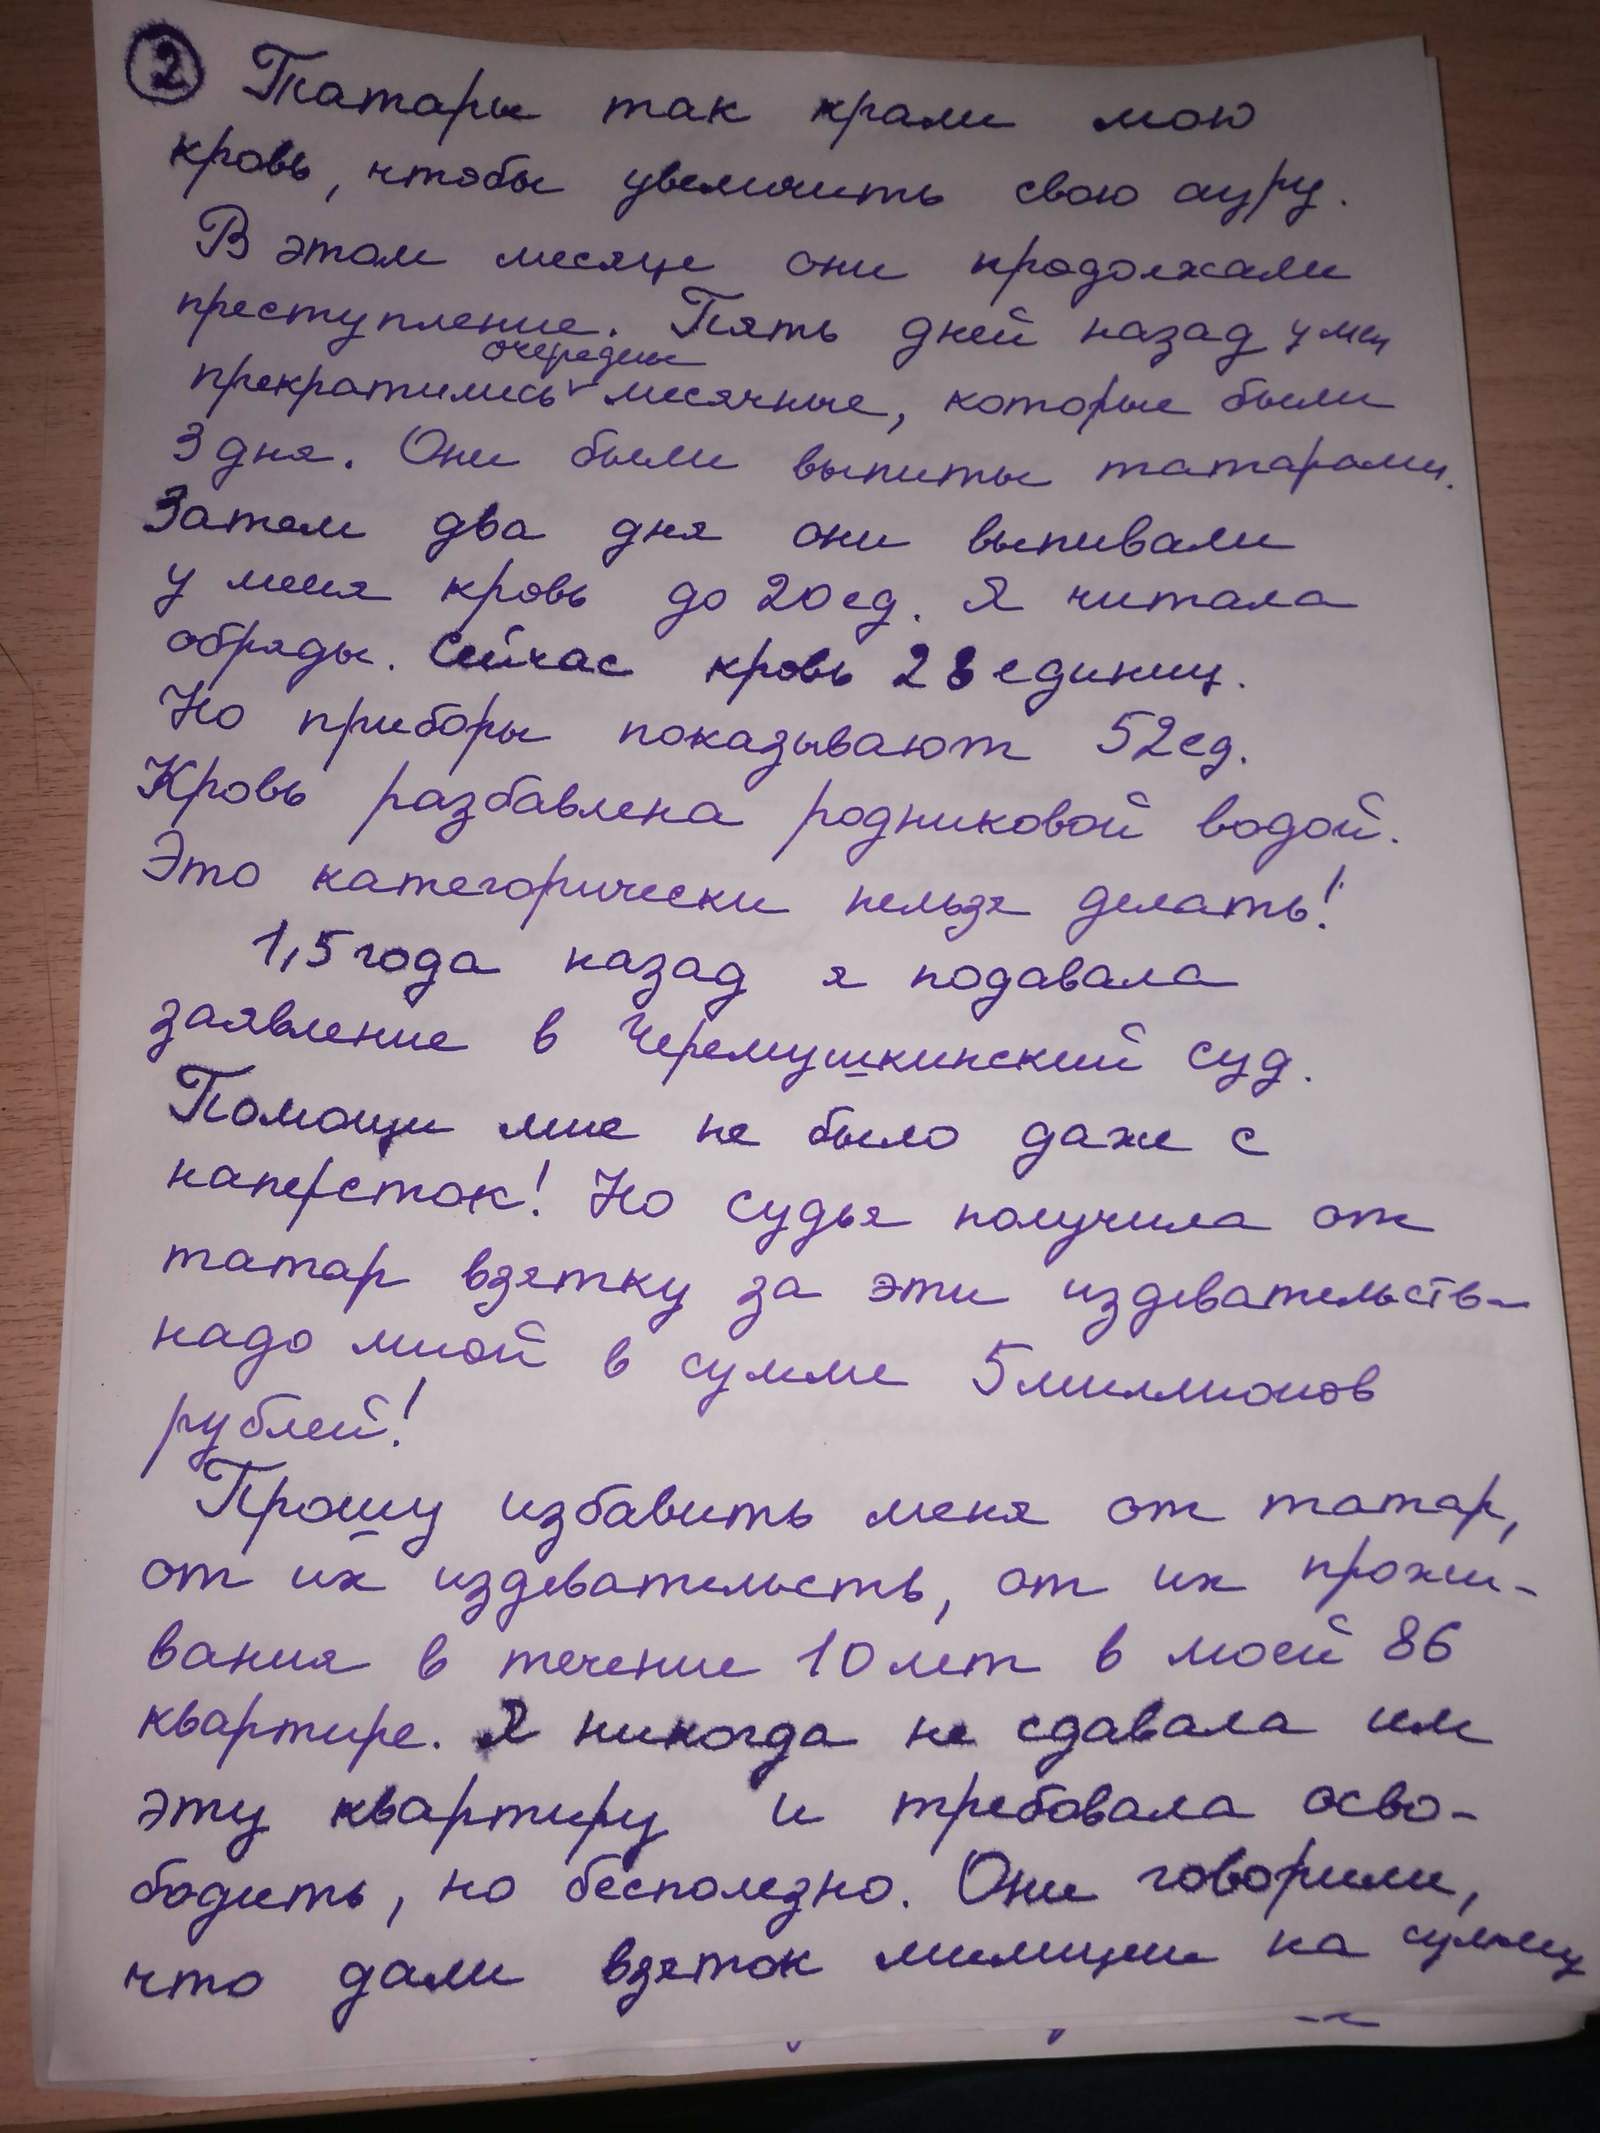 ② Татары так крали мою
кровь, чтобы увеличить свою ауру.
В этом месяце они продолжали
преступление. Пять дней назад у мен
очередные
прекратились месячные, которые были
3 дня. Они были выпиты татарами.
Затем два дня они выпивали
у меня кровь до 20 ед. Я читала
обряды. Сейчас кровь 28 единиц.
Но приборы показывают 52 ед.
Кровь разбавлена родниковой водой.
Это категорически нельзя делать!
1,5 года назад я подавала
заявление в Черемушкинский суд.
Помощи мне не было даже с
наперсток! Но судья получила от
татар взятку за эти издевательств
надо мной в сумме 5 миллионов
рублей!
Прошу избавить меня от татар,
от их издевательств, от их прожи-
вания в течение 10 лет в моей 86
квартире. Я никогда не сдавала им
эту квартиру и требовала осво-
бодить, но бесполезно. Они говорили,
что дали взяток милиции на сумму